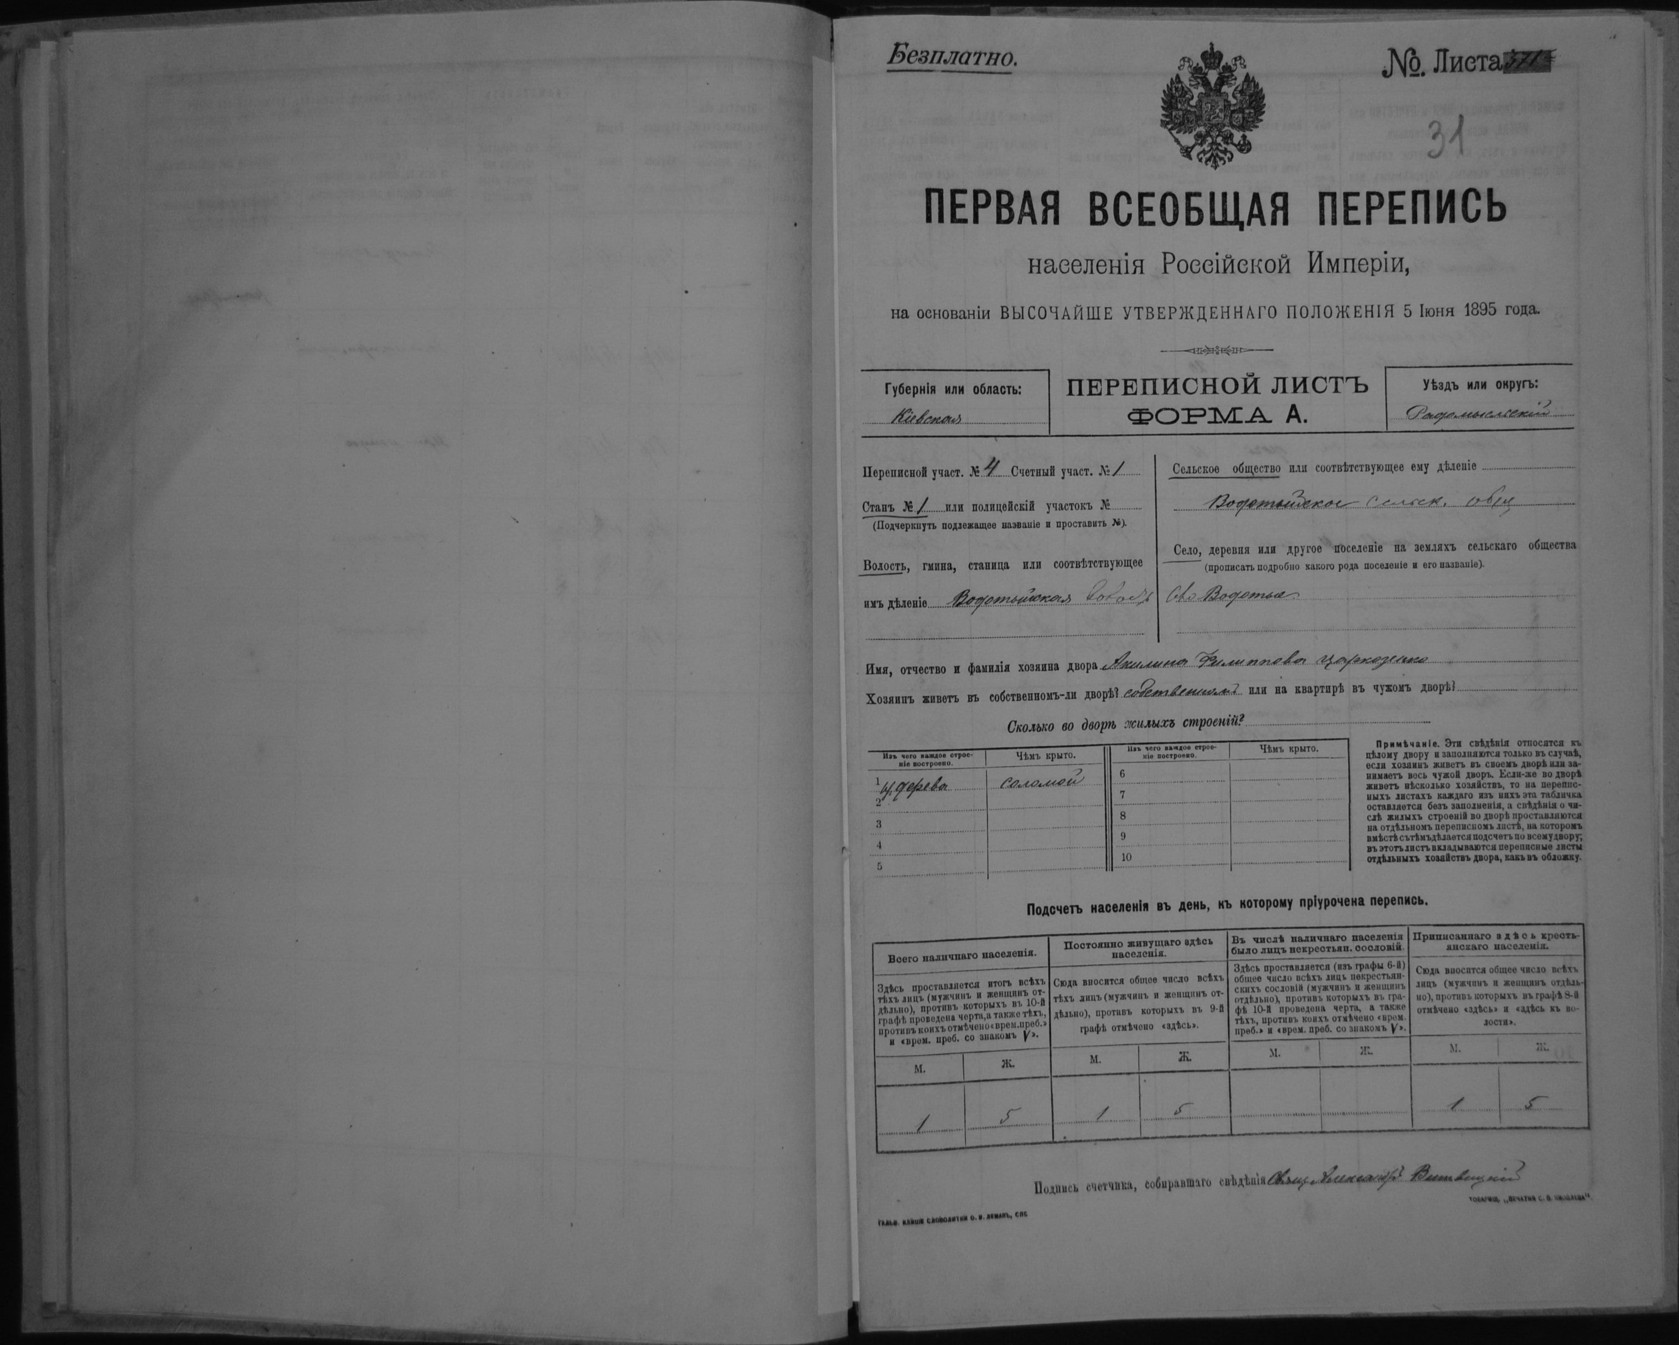 Безплатно.
№. Листа
31
ПЕРВАЯ ВСЕОБЩАЯ ПЕРЕПИСЬ
населенія Россійской Имперіи,
на основаніи ВЫСОЧАЙШЕ УТВЕРЖДЕННАГО ПОЛОЖЕНІЯ 5 Іюня 1895 года.
Губернія или область:
Кіевская
ПЕРЕПИСНОЙ ЛИСТЪ
ФОРМА А.
Уѣздъ или округъ:
Радомысльскій
Переписной участ. № 4 Счетный участ. № 1
Станъ № 1 или полицейскій участокъ №
(Подчеркнуть подлежащее названіе и проставить №).
Волость, гмина, станица или соотвѣтствующее
имъ дѣленіе Водотыйская
Сельское общество или соотвѣтствующее ему дѣленіе
Водотыйское сельск. общ
Село, деревня или другое поселеніе на земляхъ сельскаго общества
(прописать подробно какого рода поселеніе и его названіе).
Водотыи
Имя, отчество и фамилія хозяина двора Акилина Филиппова
Хозяинъ живетъ въ собственномъ-ли дворѣ? собственномъ или на квартирѣ въ чужомъ дворѣ?
Сколько во дворѣ жилыхъ строеній?
Изъ чего каждое строе-
ніе построено.
Чѣмъ крыто.
Изъ чего каждое строе-
ніе построено.
Чѣмъ крыто.
1 дерева соломой
2
3
4
5
6
7
8
9
10
Примѣчаніе. Эти свѣдѣнія относятся къ
цѣлому двору и заполняются только въ случаѣ,
если хозяинъ живетъ въ своемъ дворѣ или за-
нимаетъ весь чужой дворъ. Если-же во дворѣ
живетъ нѣсколько хозяйствъ, то на перепис-
ныхъ листахъ каждаго изъ нихъ эта табличка
оставляется безъ заполненія, а свѣдѣнія о чи-
слѣ жилыхъ строеній во дворѣ проставляются
на отдѣльномъ переписномъ листѣ, на которомъ
вмѣстѣ съ тѣмъ дѣлается подсчетъ по всему двору;
въ этотъ листъ вкладываются переписные листы
отдѣльныхъ хозяйствъ двора, какъ въ обложку.
Подсчетъ населенія въ день, къ которому пріурочена перепись.
Всего наличнаго населенія.
Здѣсь проставляется итогъ всѣхъ
тѣхъ лицъ (мужчинъ и женщинъ от-
дѣльно), противъ которыхъ въ 10-й
графѣ проведена черта, а также тѣхъ,
противъ коихъ отмѣчено «врем. преб.»
и «врем. преб. со знакомъ V».
М. Ж.
1 5
Постоянно живущаго здѣсь
населенія.
Сюда вносится общее число всѣхъ
тѣхъ лицъ (мужчинъ и женщинъ от-
дѣльно), противъ которыхъ въ 9-й
графѣ отмѣчено «здѣсь».
М. Ж.
1 5
Въ числѣ наличнаго населенія
было лицъ некрестьян. сословій.
Здѣсь проставляется (изъ графы 6-й)
общее число всѣхъ лицъ некрестьян-
скихъ сословій (мужчинъ и женщинъ
отдѣльно), противъ которыхъ въ гра-
фѣ 10-й проведена черта, а также
тѣхъ, противъ коихъ отмѣчено «врем.
преб.» и «врем. преб. со знакомъ V».
М. Ж.
Приписаннаго здѣсь кресть-
янскаго населенія.
Сюда вносится общее число всѣхъ
лицъ (мужчинъ и женщинъ отдѣль-
но), противъ которыхъ въ графѣ 8-й
отмѣчено «здѣсь» и «здѣсь къ во-
лости».
М. Ж.
1 5
Подпись счетчика, собиравшаго свѣдѣнія Александръ Витвицкій